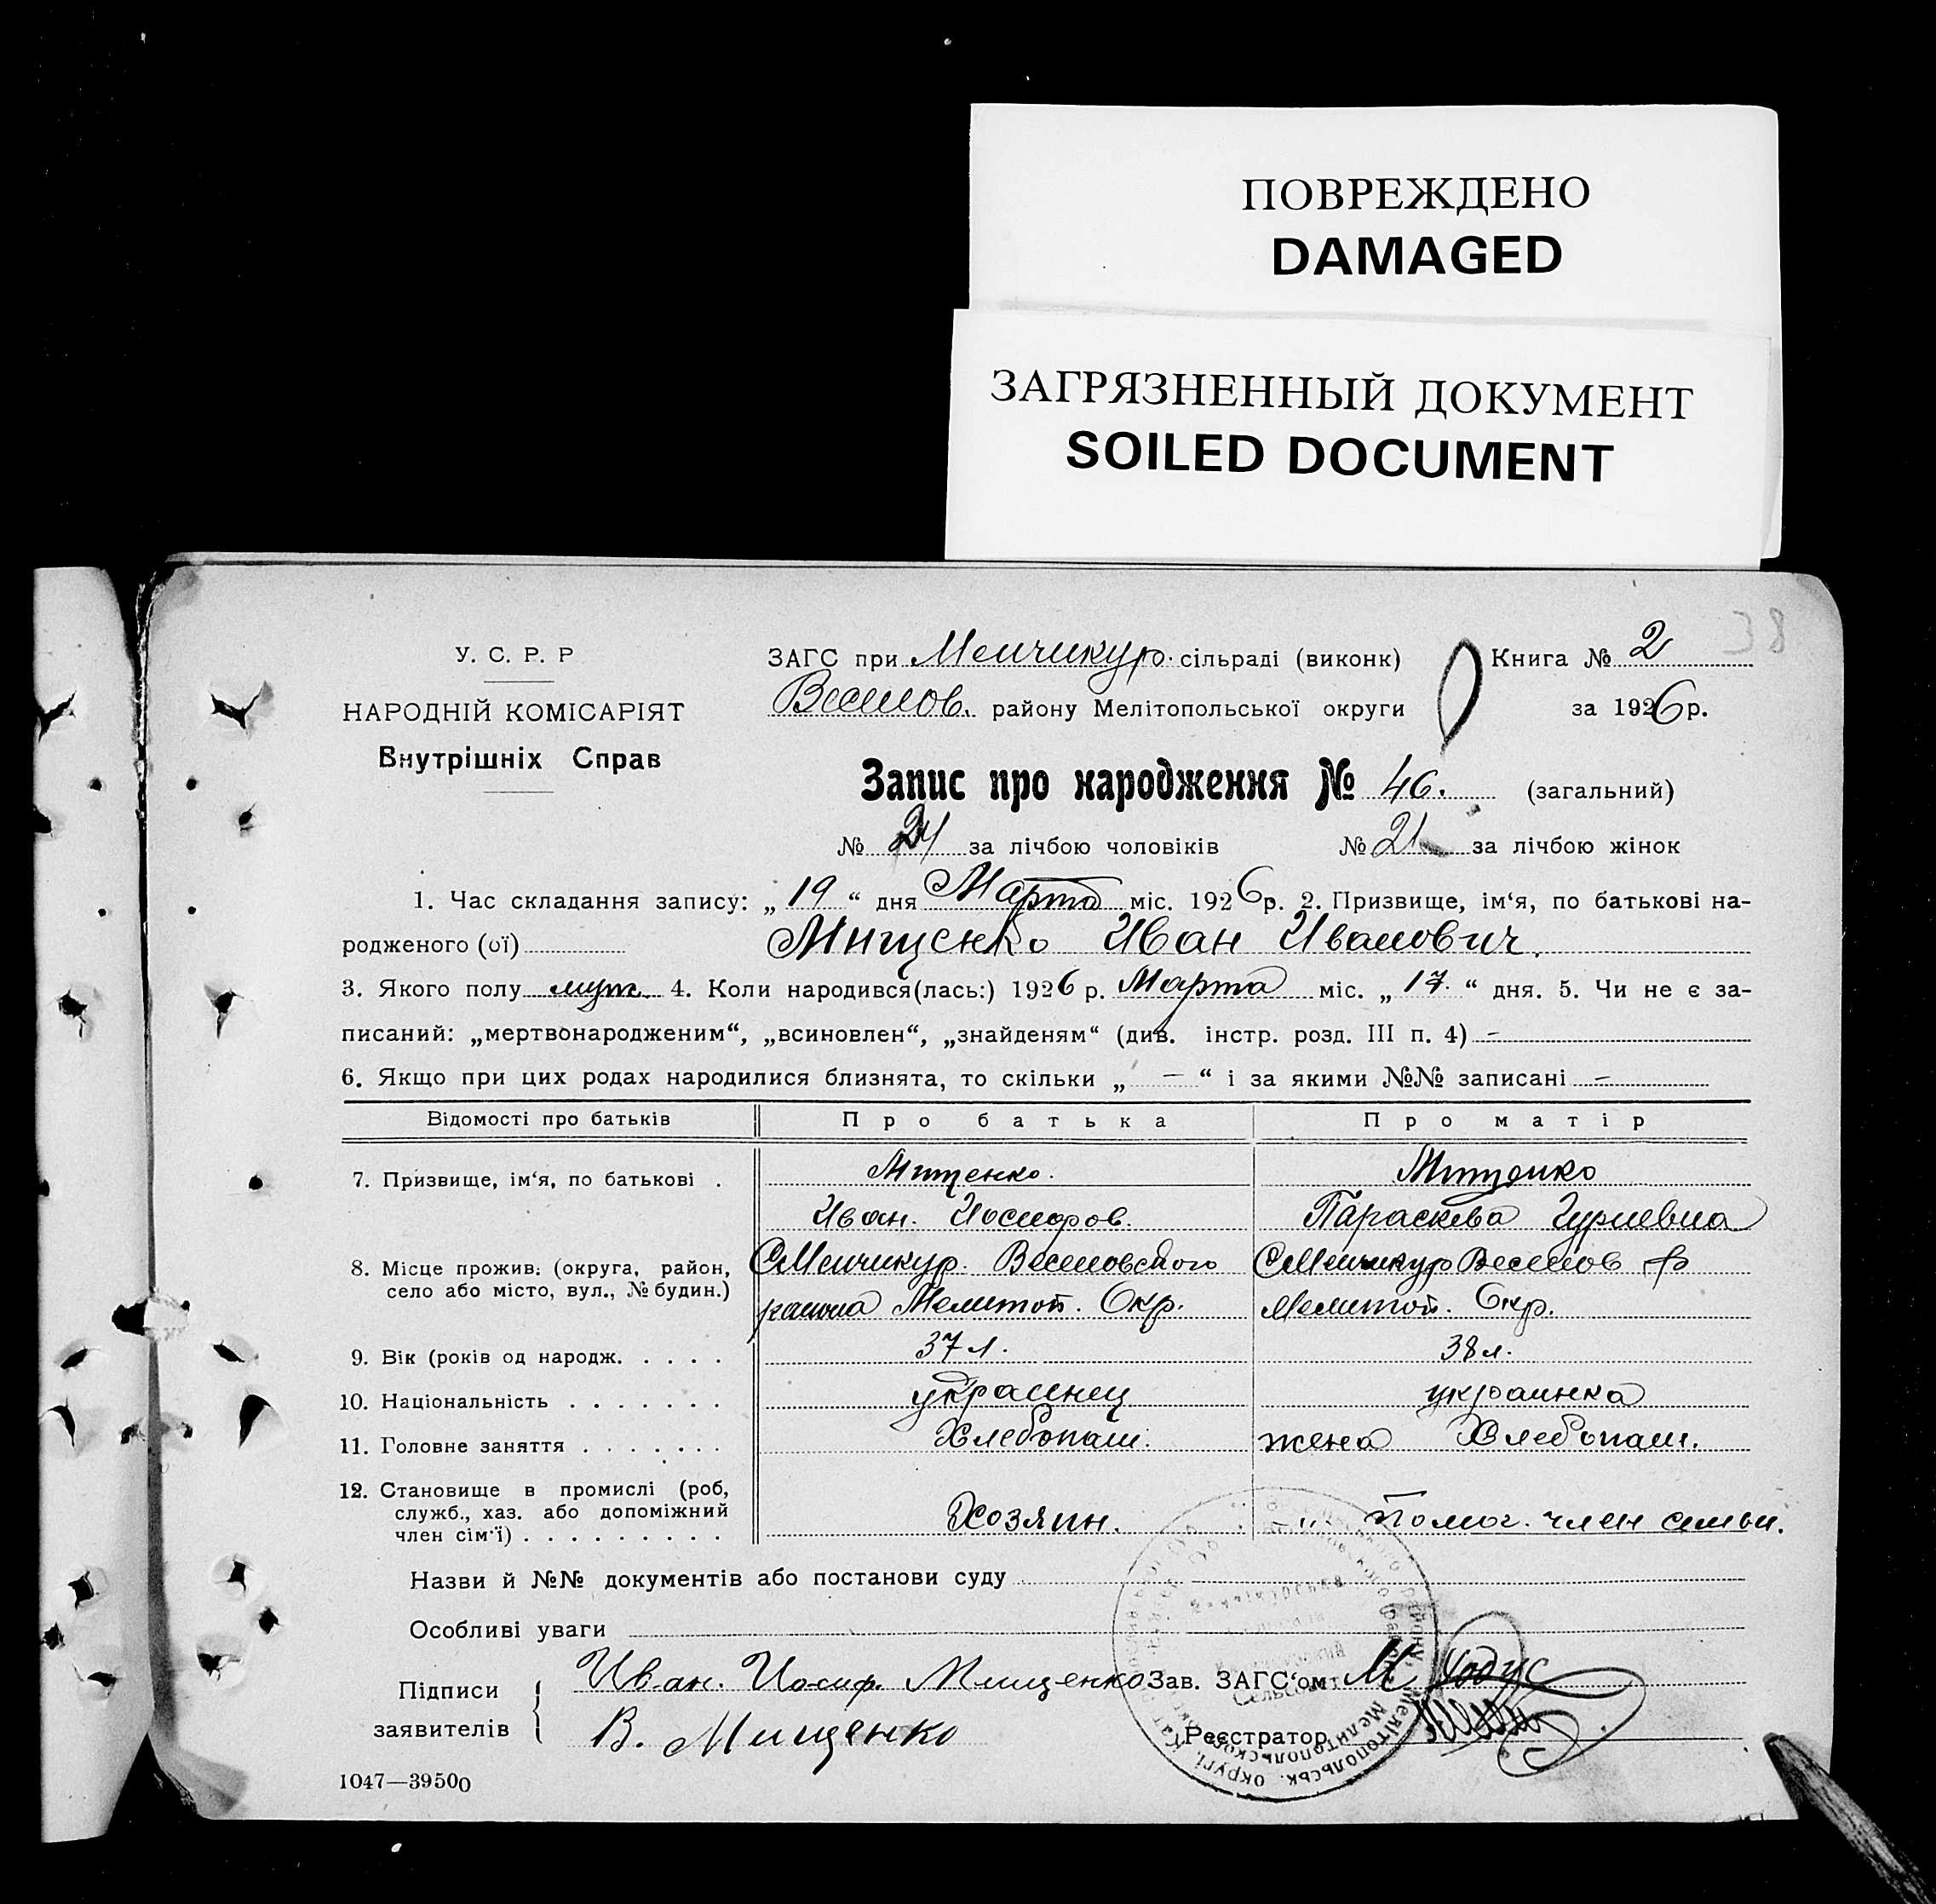 ПОВРЕЖДЕНО
DAMAGED
ЗАГРЯЗНЕННЫЙ ДОКУМЕНТ
SOILED DOCUMENT
38
У. С. Р. Р
НАРОДНІЙ КОМІСАРІЯТ
Внутрішніх Справ
ЗАГС при Менчикур. сільраді (виконк) Книга № 2
Веселов. району Мелітопольської округи за 1926 р.
Запис про народження № 46. (загальний)
№ 24 за лічбою чоловіків № 21 за лічбою жінок
1. Час складання запису: „ 19 “ дня Марта міс. 1926 р. 2. Призвище, ім‘я, по батькові на-
родженого (ої) Мищенко Иван Иванович.
3. Якого полу муж. 4. Коли народився(лась:) 1926 р. Марта міс. „ 17. “ дня. 5. Чи не є за-
писаний: „мертвонародженим“, „всиновлен“, „знайденям“ (див. інстр. розд. III п. 4) -
6. Якщо при цих родах народилися близнята, то скільки „ — “ і за якими №№ записані —
Відомості про батьків Про батька Про матір
7. Призвище, ім‘я, по батькові . Мищенко. Мищенко
Иван. Иосифов. Параскева Гуриевна
8. Місце прожив. (округа, район, С Менчикур. Веселовского С Менчикур Веселов р
село або місто, вул., № будин.) района Мелитоп. Окр. Мелитоп. Окр.
9. Вік (років од народж. . . . . 37 л. 38 л.
10. Національність . . . . . . . украинец украинка
11. Головне заняття . . . . . . . Хлебопаш. жена Хлебопаш.
12. Становище в промислі (роб,
служб., хаз. або допоміжний
член сім‘ї) . . . . . . . . . Хозяин. Помог. член семьи.
Назви й №№ документів або постанови суду
Особливі уваги
Підписи заявителів { Иван. Иосиф. Мищенко Зав. ЗАГС‘ом М
В. Мищенко Реєстратор
1047—39500